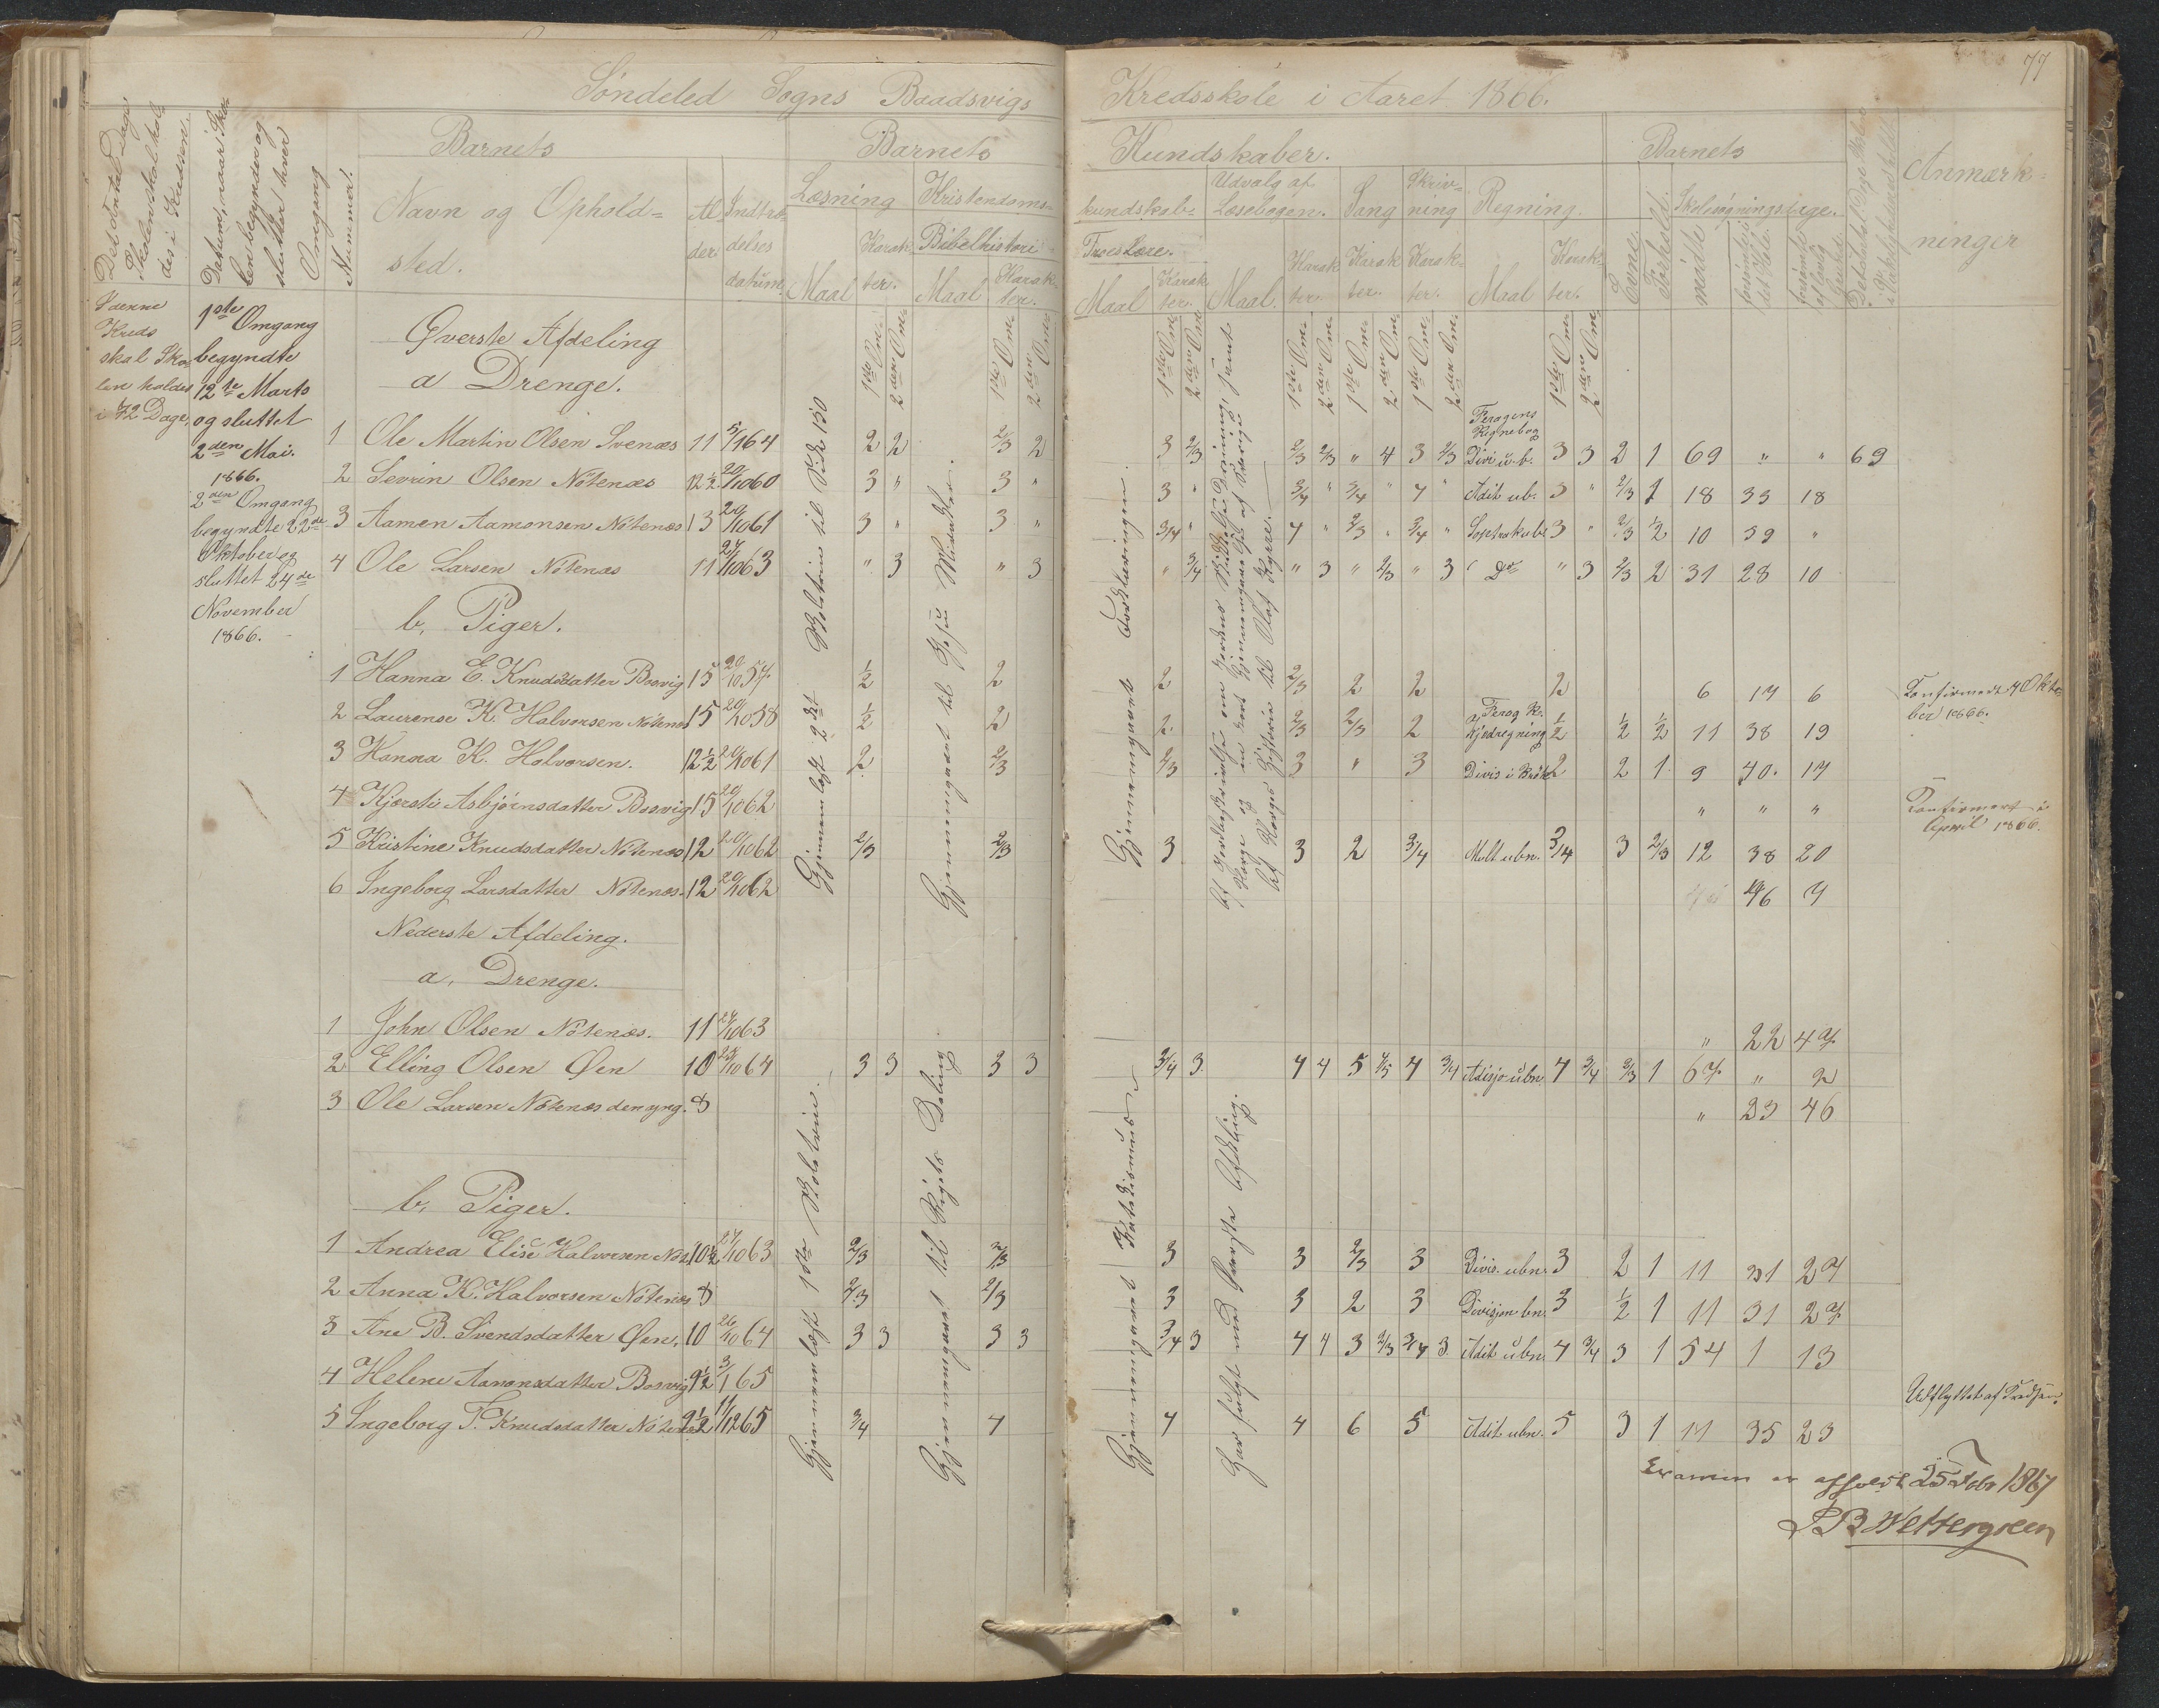 77
Søndeled Sogns Baadsvigs Kredsskole i Aaret 1866.
Det Antal Dage Skolen skal holdes i Kredsen.
Datum, naar Skolen begynder og slutter hver Omgang
Nummer.
Barnets
Navn og Opholdssted.
Alder
Indtrædelsesdatum.
Barnets Kundskaber.
Læsning
Maal
Karakter.
Kristendomskundskab.
Bibelhistorie
Maal
Karakter.
Troeslære.
Maal
Karakter.
Udvalg af Læsebogen.
Maal.
Karakter.
Sang
Karakter.
Skrivning
Karakter.
Regning.
Maal
Karakter.
Barnets
Evne.
Forhold.
Skolesøgningsdage.
mødte
forsømte det Hele.
forsømte af lovlig Grund.
Anmærkninger
I denne
Kreds
skal Skolen
holdes
i 72 Dage,
1ste Omgang
begyndte
12te Marts
og sluttet
2den Mai.
1866.
2den Omgang
begyndte 22de
Oktober og
sluttet 24de
November
1866.
Øverste Afdeling
a Drenge.
1ste Om. 2den Om. 1ste Om. 2den Om. 1ste Om. 2den Om. 1ste Om. 2den Om. 1ste Om. 2den Om. 1ste Om. 2den Om. 1ste Om. 2den Om.
Feragens Regnebog
1 Ole Martin Olsen Svenæs 11 5/1 64 2 2 2/3 2 3 2/3 2/3 2/3 " 4 3 2/3 Divi u.b. 3 3 2 1 69 " " 69
2 Sevrin Olsen Nøtenæs 12½ 20/10 60 3 " 3 " 3 " 3/4 " 3/4 " 4 " Adit ub. 3 " 2/3 1 18 33 18
3 Aamen Aamonsen Nøtenæs 13 20/10 61 3 " 3 " 3/4 " 4 " 2/3 " 3/4 " Soptrak ub 3 " 2/3 ½ 10 39 "
4 Ole Larsen Nøtenæs 11 27/10 63 " 3 " 3 " 3/4 " 3 " 2/3 " 3 Do " 3 2/3 2 31 28 10
b. Piger.
1 Hanna E. Knudsdatter Bosvig 15 20/10 57 ½ 2 2 2/3 2 2 2 6 17 6 Konfirmert 7 Oktober 1866.
2 Laurense K. Halvorsen Nøtenæs 15 20/10 58 ½ 2 2 2/3 2/3 2 Ferag K. Kjedregning ½ ½ ½ 11 38 19
3 Hanna K. Halvorsen. 12½ 20/10 61 2 2/3 2/3 3 " 3 Divis i Brøk 2 2 1 9 40 17
4 Kjersti Asbjørnsdatter Bosvig 15 20/10 62 " " " Konfirmert i April 1866.
5 Kristine Knudsdatter Nøtenæs 12 20/10 62 2/3 2/3 3 3 2 3/4 Mult ubn. 3/4 3 2/3 12 38 20
6 Ingeborg Larsdatter Nøtenæs. 12 20/10 62 46 7
Gjennemlæst 2det Skoletrin til Side 130
Gjennemgaaet til Jesu Mirakler.
Gjennemgaaet Forklaringen.
Nederste Afdeling.
a, Drenge.
1 John Olsen Nøtenæs. 11 27/10 63 " 22 47
2 Elling Olsen Øen 10 25/10 64 3 3 3 3 3/4 3 4 4 5 4/5 4 3/4 Adisjo ubn 4 3/4 2/3 1 67 " 2
3 Ole Larsen Nøtenæs den yng. 8 " 23 46
b. Piger.
1 Andrea Elise Halvorsen Nøt. 10½ 27/10 63 2/3 2/3 3 3 2/3 3 Divis. ubn. 3 2 1 11 31 27
2 Anna K. Halvorsen Nøtenæs 8 2/3 2/3 3 3 2 3 Divisjon bn. 3 ½ 1 11 31 27
3 Ane B. Svendsdatter Øen. 10 26/10 64 3 3 3 3 3/4 3 4 4 3 2/3 3/4 3. Adit ubn. 4 3/4 3 1 54 1 13
4 Helene Aanonsdatter Bosvig 9½ 3/1 65 Udflyttet af Kredsen.
5 Ingeborg T. Knudsdatter Nøtenæs 9½ 11/12 65 3/4 4 4 4 6 5 Adit ubn. 5 3 1 11 35 23
Gjennemlæst 1ste Skoletrin.
Gjennemgaaet til Rigets Deling
Gjennemgaaet Katekismus
Har fulgt med Øverste Afdeling.
Examen er afholdt 25 Febr 1867
Wettergreen